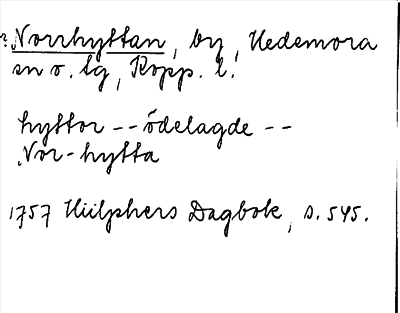 Norrhyttan, by, Hedemora
sn o. tg, Kopp. l.
hyttor -- ödelagde --
Nor-hytta
1757 Hülphers Dagbok, s. 545.